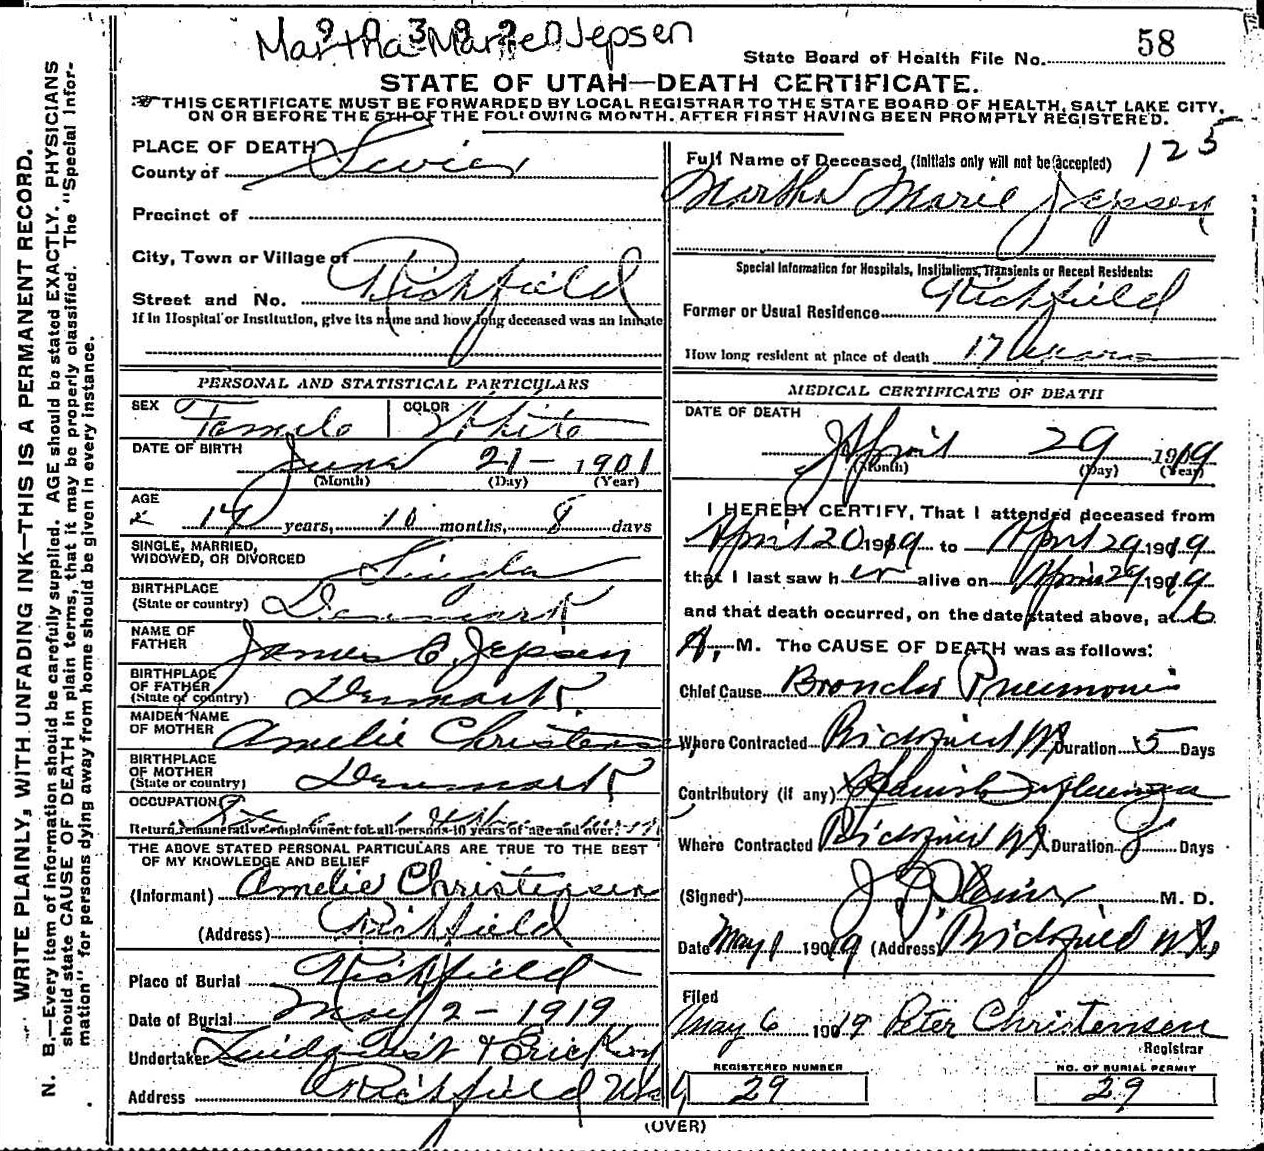 Martha Marie Jepsen
State Board of Health File No. 58
STATE OF UTAH—DEATH CERTIFICATE.
THIS CERTIFICATE MUST BE FORWARDED BY LOCAL REGISTRAR TO THE STATE BOARD OF HEALTH, SALT LAKE CITY,
ON OR BEFORE THE 5TH OF THE FOLLOWING MONTH, AFTER FIRST HAVING BEEN PROMPTLY REGISTERED.
WRITE PLAINLY, WITH UNFADING INK—THIS IS A PERMANENT RECORD.
N. B.—Every item of information should be carefully supplied. AGE should be stated EXACTLY. PHYSICIANS
should state CAUSE OF DEATH in plain terms, that it may be properly classified. The "Special Infor-
mation" for persons dying away from home should be given in every instance.
PLACE OF DEATH
County of Sevier
Precinct of
City, Town or Village of Richfield
Street and No.
If in Hospital or Institution, give its name and how long deceased was an Inmate
PERSONAL AND STATISTICAL PARTICULARS
SEX Female COLOR White
DATE OF BIRTH
June 21 - 1901
(Month) (Day) (Year)
AGE
17 years, 10 months, 8 days
SINGLE, MARRIED,
WIDOWED, OR DIVORCED Single
BIRTHPLACE
(State or country) Denmark
NAME OF
FATHER James C. Jepsen
BIRTHPLACE
OF FATHER
(State or country) Denmark
MAIDEN NAME
OF MOTHER Amelie Christensen
BIRTHPLACE
OF MOTHER
(State or country) Denmark
OCCUPATION
Return remunerative employment for all persons 10 years of age and over.
THE ABOVE STATED PERSONAL PARTICULARS ARE TRUE TO THE BEST
OF MY KNOWLEDGE AND BELIEF
(Informant) Amelie Christensen
(Address) Richfield
Place of Burial Richfield
Date of Burial May 2 - 1919
Undertaker
Address Richfield Utah
125
Full Name of Deceased, (Initials only will not be accepted)
Martha Marie Jepsen
Special Information for Hospitals, Institutions, Transients or Recent Residents:
Former or Usual Residence Richfield
How long resident at place of death 17 Years
MEDICAL CERTIFICATE OF DEATH
DATE OF DEATH
April 29 1919
(Month) (Day) (Year)
I HEREBY CERTIFY, That I attended deceased from
April 20 1919 to April 29 1919
that I last saw her alive on April 29 1919
and that death occurred, on the date stated above, at 6
A. M. The CAUSE OF DEATH was as follows:
Chief Cause Broncho Pneumonia
Where Contracted Richfield Ut Duration 5 Days
Contributory (if any) Spanish Influenza
Where Contracted Richfield Ut Duration 8 Days
(Signed) M. D.
Date May 1 1909 (Address) Richfield Ut
Filed
May 6 1919 Peter Christensen
Registrar
REGISTERED NUMBER
29
NO. OF BURIAL PERMIT
29
(OVER)